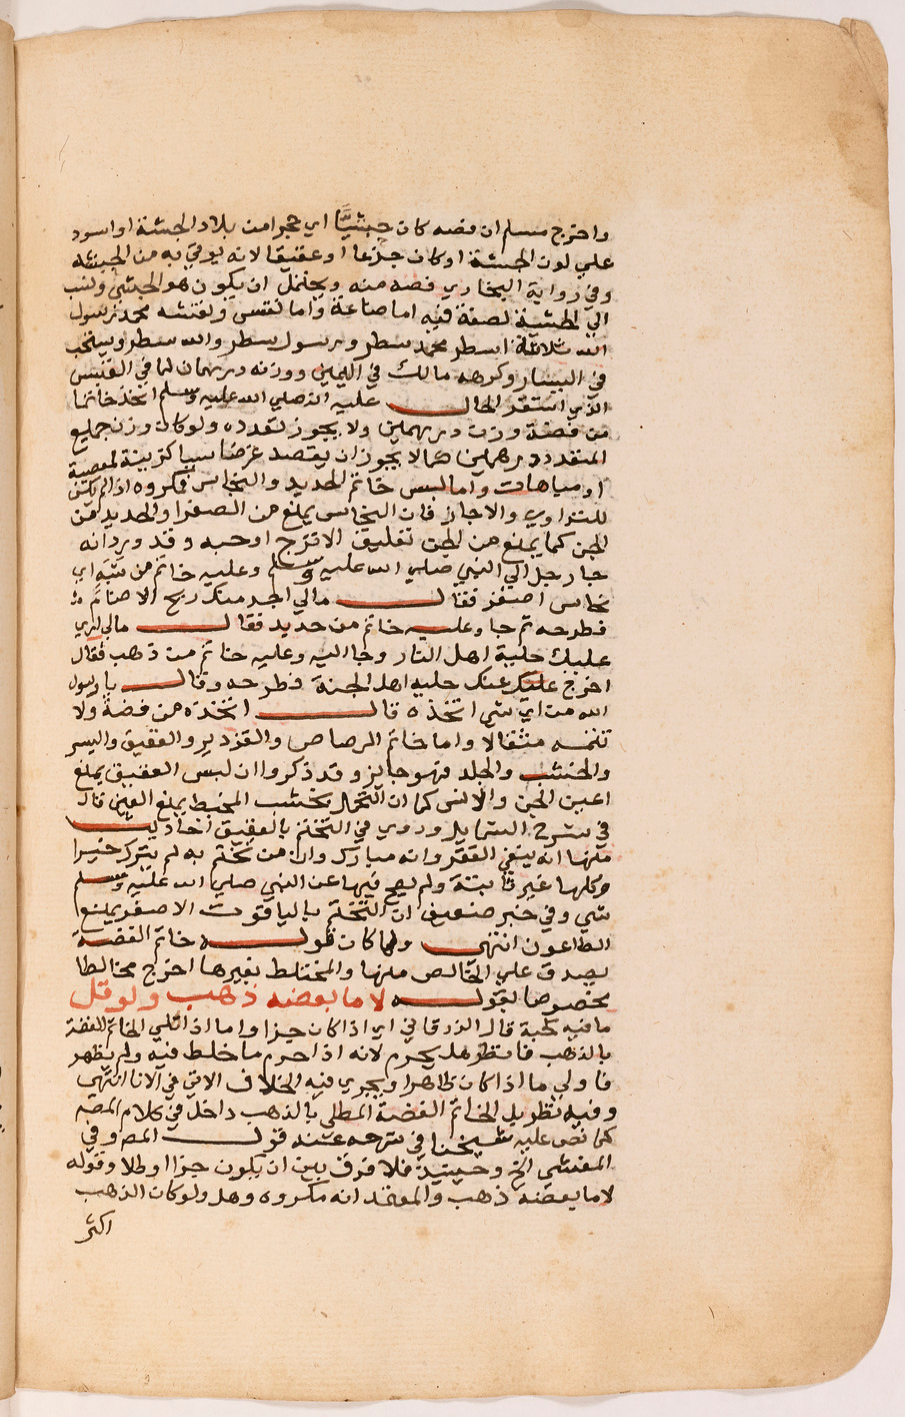 واخرج مسلم ان فصه كان حبشيًّا اي حجرا من بلاد الحبشة او اسود
علي لون الحبشة او كان جزعا او عقيقا لانه يوتي به من الحبشه
وفي رواية البخاري فصه منه ويحتمل ان يكون هو الحبشي ونسب
الي الحبشية لصفة فيه اما صناعة واما نقشي ونقشه محمد رسول
الله ثلاثة اسطر محمد سطر ورسول سطر والله سطر ويستحب
في اليسار وكرهه مالك في اليمين ووزنه درهمان لما في القبس
الذي استقر الحال عليه انه صلي الله عليه وسلم اتخذ خاتما
من فضة وزن درهمين ولا يجوز تعدده ولو كان وزن جميع
المتعدد درهمين كما لا يجوز ان يقصد غرضا سيا كزينة لمعصية
او مباهات واما لبس خاتم الحديد والنحاس فمكروه اذا لم يكن
للتداوي والا جاز فان النحاس يمنع من الصفرا والحديد من
الجن كما يمنع من الجن تعليق الاترج او حبه وقد ورد انه
جا رجل الي النبي صلي الله عليه وسلم وعليه خاتم من شبه اي
نحاس اصفر فقال مالي اجد منك ريح الاصنام
فطرحه ثم جا وعليه خاتم من حديد فقال مالي اري
عليك حلية اهل النار وجا اليه وعليه خاتم من ذهب فقال
اخرج عنك حليه اهل الجنة فطرحه وقال يا رسول
الله من اي شي اتخذه قال اتخذه من فضة ولا
تتمه مثقالا واما خاتم الرصاص والقزدير والعقيق واليسر
والخشب والجلد فهو جايز وقد ذكروا ان لبس العقيق يمنع
اعين الجن والانس كما ان التحمل بخشب المخيط يمنع العين قال
في شرح الشمايل وروي في التختم بالعقيق احاديث
منها انه ينفي الفقر وانه مبارك وان من تختم به لم يزل يرى خيرا
وكلها غير ثابتة ولم يصح فيها عن النبي صلي الله عليه وسلم
شي وفي خبر ضعيف ان التختم بالياقوت الاصفر يمنع
الطاعون انتهى ولما كان قوله خاتم الفضة
يصدق علي الخالص منها والمختلط بغيرها اخرج مخالطا
مخصوصا بقوله لا ما بعضه ذهب ولو قل
ما فيه كحبة قال الزرقاني اي اذا كان حيزا واما اذا طلي الخاتم الفضة
بالذهب فانظر هل يحرم لانه اذا حرم ما خلط فيه ولم يظهر
فاولي ما اذا كان ظاهرا ويجري فيه الخلاف الاتي في الانا انتهي
وفيه نظر بل الخاتم الفضة المطلي بالذهب داخل في كلام المصه
كما نص عليه شيخنا في شرحه عند قول المص وفي
المغشي الخ وحينيذ فلا فرق بين ان يكون حيزا او طلا وقوله
لا ما بعضه ذهب والمعتمد انه مكروه وهل ولو كان الذهب
اكثر